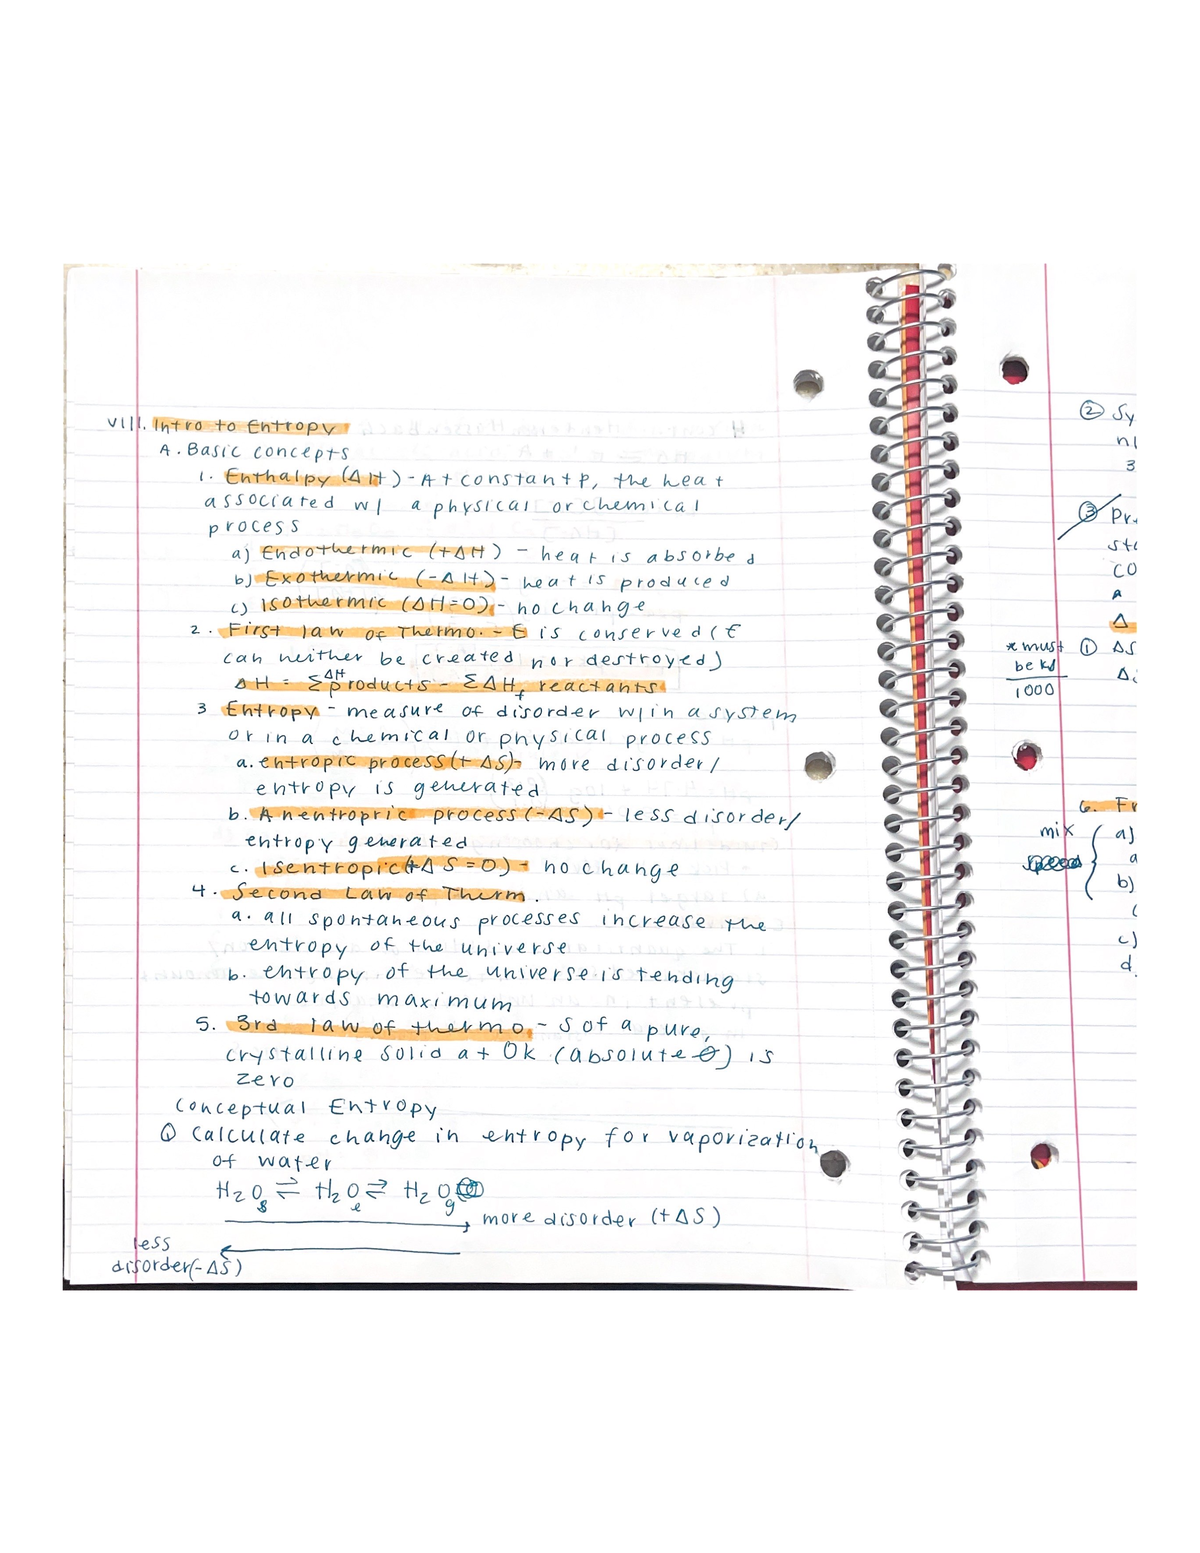 VIII. Intro to Entropy
A. Basic concepts
1. Enthalpy (ΔH) - At constant P, the heat
associated w/ a physical or chemical
process
a) Endothermic (+ΔH) - heat is absorbed
b) Exothermic (-ΔH) - heat is produced
c) Isothermic (ΔH=0) - no change
2. First law of Thermo. - E is conserved (E
can neither be created nor destroyed)
ΔH = ΣΔH products - ΣΔHf reactants
3 Entropy - measure of disorder w/in a system
or in a chemical or physical process
a. entropic process (+ ΔS) - more disorder/
entropy is generated
b. Anentropric process (-ΔS) - less disorder/
entropy generated
c. Isentropic (ΔS = 0) - no change
4. Second Law of Therm.
a. all spontaneous processes increase the
entropy of the universe
b. entropy of the universe is tending
towards maximum
5. 3rd law of thermo. - S of a pure,
crystalline solid at 0k (absolute 0) is
zero
Conceptual Entropy
① Calculate change in entropy for vaporization
of water
H2Os ⇌ H2Ol ⇌ H2Og
more disorder (+ΔS)
less
disorder (-ΔS)
② Sy
3
③ Pr
sta
CO
A
Δ
* must ① ΔS
be kJ
1000
6. Fr
mix a)
a
b)
c)
d.